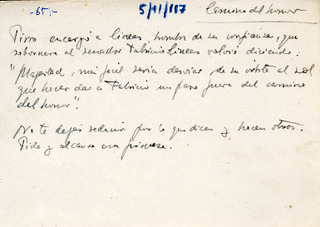 -65.- 5/11/117 Camino del honor
Pirro encargó a Cineas, hombre de su confianza, que
sobornara al senador Fabricio. Cineas volvió diciendo:
"Majestad, más fácil sería desviar de su órbita al sol
que hacer dar a Fabricio un paso fuera del camino
del honor".
No te dejes seducir por lo que dicen y hacen otros.
Pide y alcanza esa